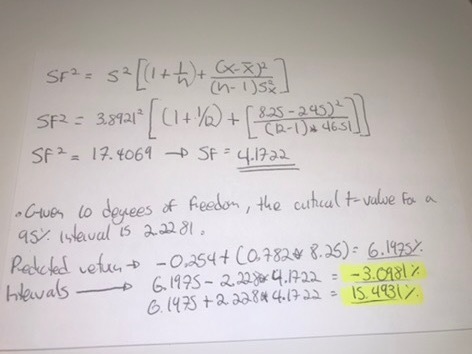 SF² = S² [(1 + 1/n) + (x - x̄)² / (n - 1)S²x]
SF² = 3.8921² [(1 + 1/12) + [8.25 - 2.45)² / (12-1) * 46.51]]
SF² = 17.4069 → SF = 4.1722
• Given 10 degrees of freedom, the critical t-value for a
95% interval is 2.2281.
Predicted return → -0.254 + (0.782 * 8.25) = 6.1975%
Intervals → 6.1975 - 2.228 * 4.1722 = -3.0981%
6.1975 + 2.228 * 4.1722 = 15.4931%